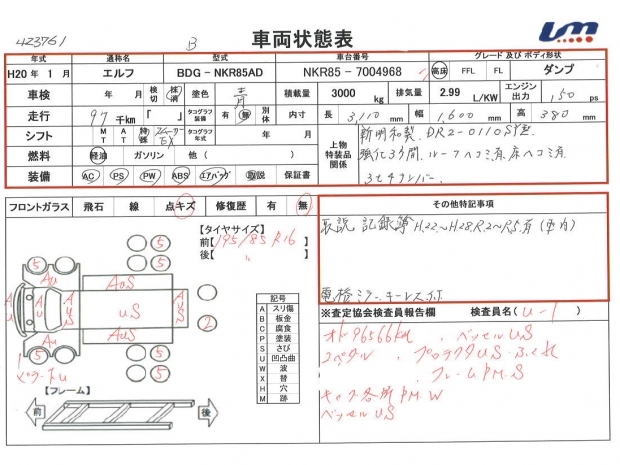 423761
B
車両状態表
um
年式 通称名 型式 車台番号 グレード 及び ボディ形状
H20 年 1 月 エルフ BDG - NKR85AD NKR85 - 7004968 高床 FFL FL ダンプ
車検 年 月 検切 抹消 塗色 青 積載量 3000 kg 排気量 2.99 L/KW エンジン出力 150 ps
走行 97 千km 「 」 タコグラフ装備 有 無 別体 内寸 長 3,110 mm 幅 1,600 mm 高 380 mm
シフト MT AT 特殊 スムーサーEX タコグラフ年式 上物特装品関係 新明和製 DR2-0110S
燃料 軽油 ガソリン 他 ( ) 強化3方開 ルーフヘコミ有 床ヘコミ有
装備 AC PS PW ABS エアバッグ 取説 保証書 3セナンバー
フロントガラス 飛石 線 点キズ 修復歴 有 無
その他特記事項
取説 記録簿 H22~H28 R2~R5有(車内)
電格ミラー キーレス
【タイヤサイズ】
前【 195/85 R16 】
後【 〃 】
記号
A スリ傷
B 板金
C 腐食
P 塗装
S さび
U 凹凸曲
W 波
X 替
H 穴
M 跡
5 5
5
AUS
US
AUS
2
5 5
5
【フレーム】
前 後
※査定協会検査員報告欄 検査員名( U-1 )
オド96566km 、 ベッセルUS
2ペダル 、 プロテクタUS
、 フレームPM.S
キャブ各所PM.W
ベッセルUS